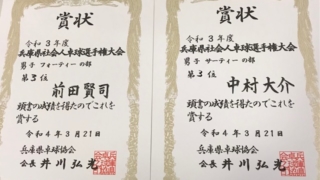 賞状
令和3年度
兵庫県社会人卓球選手権大会
男子 フォーティーの部
第3位
前田賢司
頭書の成績を得たのでこれを
賞する
令和4年3月21日
兵庫県卓球協会
会長 井川弘光
賞状
令和3年度
兵庫県社会人卓球選手権大会
男子 サーティーの部
第3位
中村大介
頭書の成績を得たのでこれを
賞する
令和4年3月21日
兵庫県卓球協会
会長 井川弘光